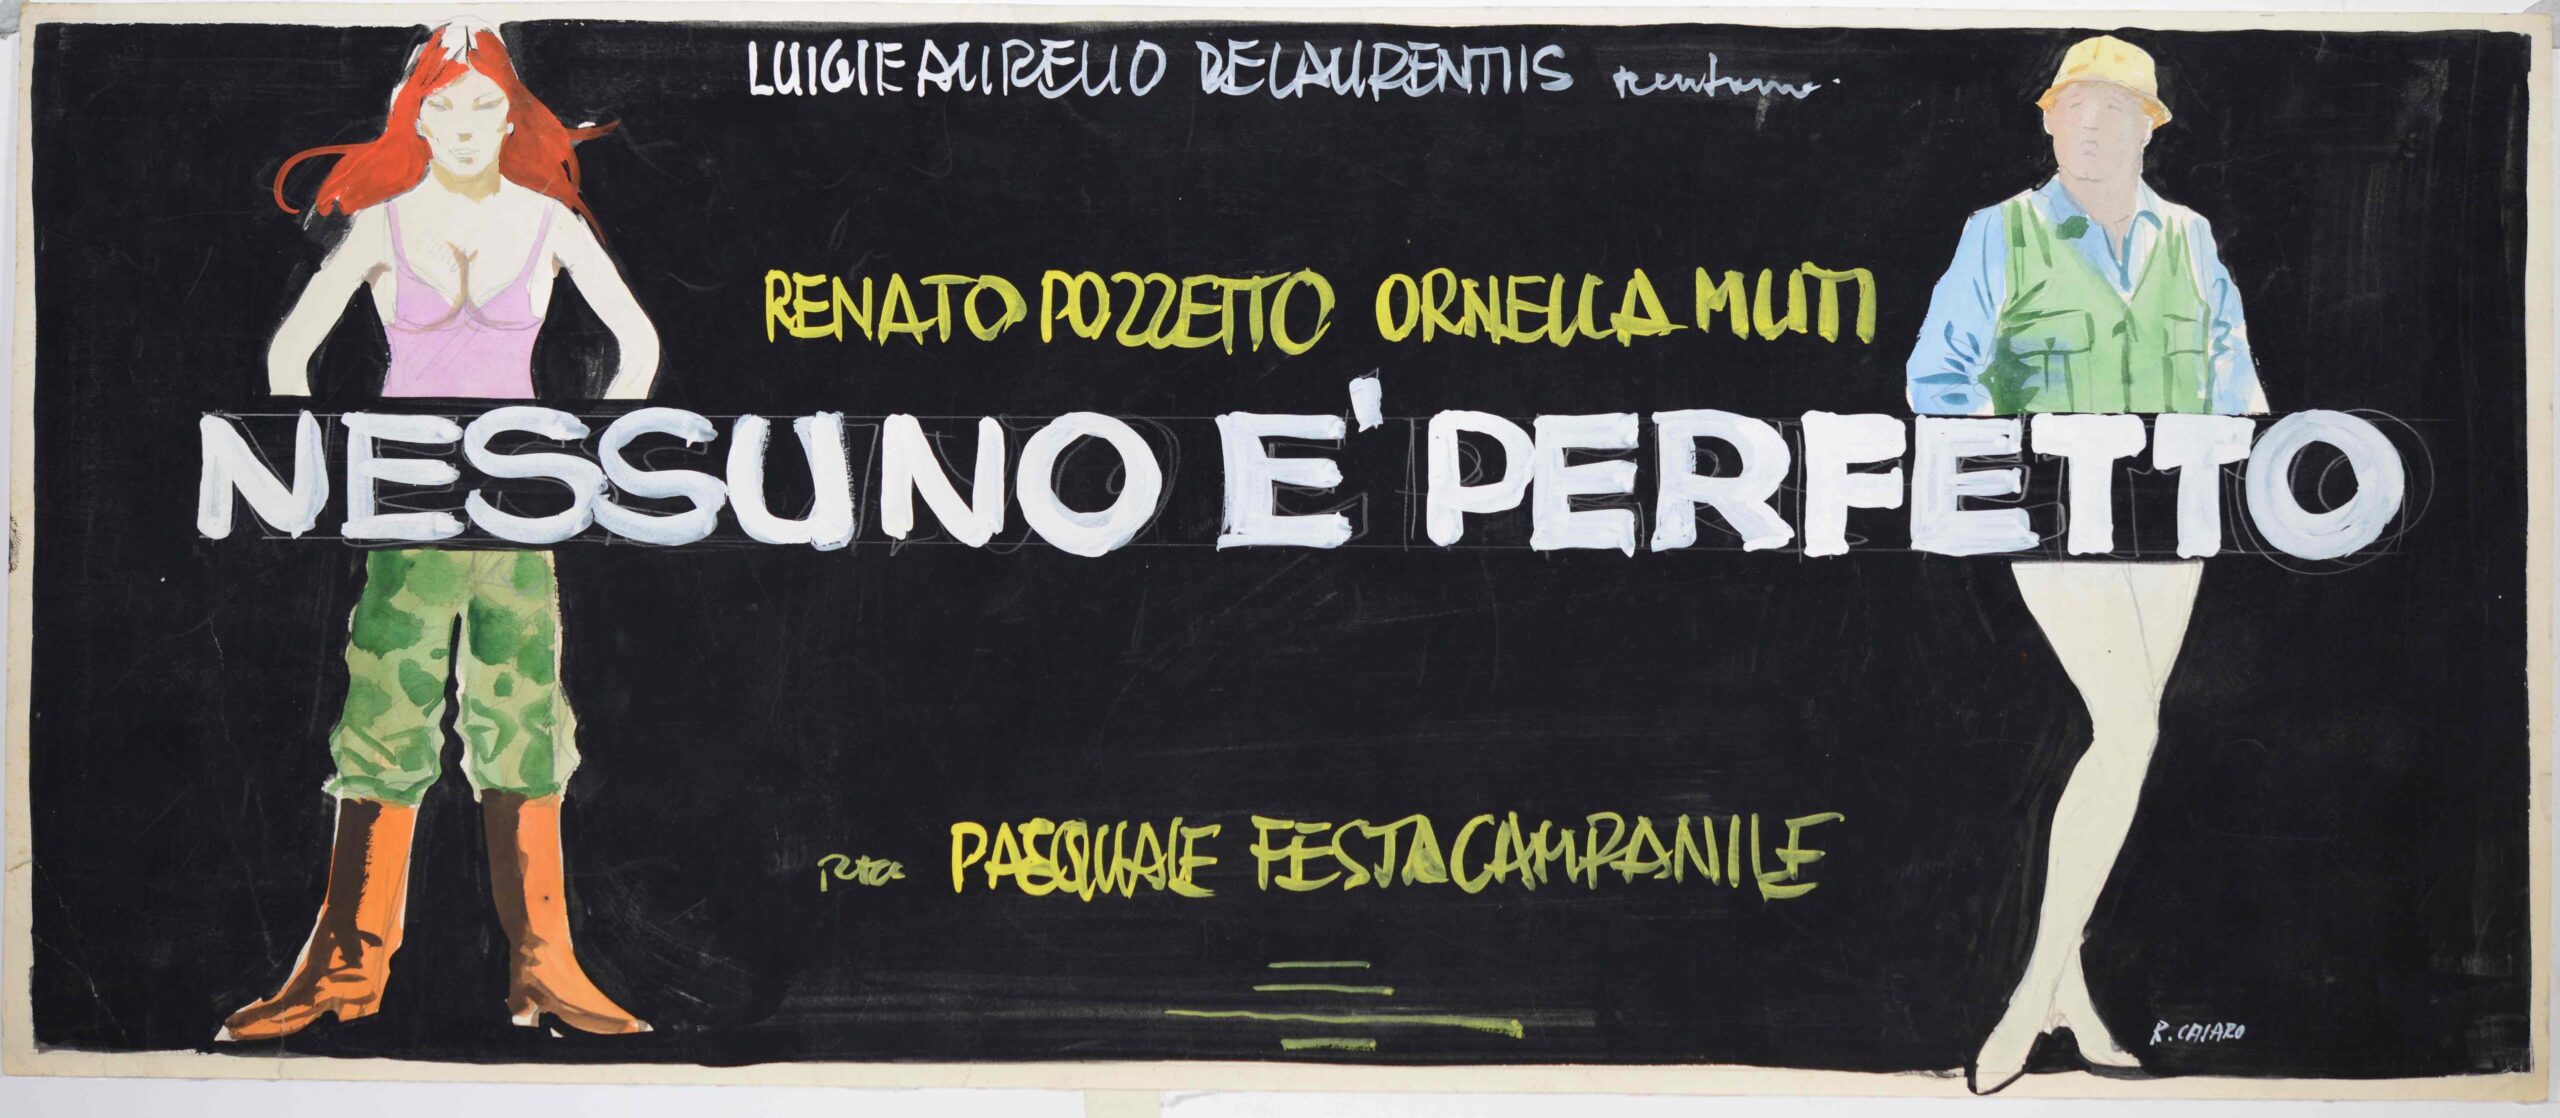 LUIGI E AURELIO DE LAURENTIIS
RENATO POZZETTO ORNELLA MUTI
NESSUNO E' PERFETTO
PASQUALE FESTA CAMPANILE
R. CASARO